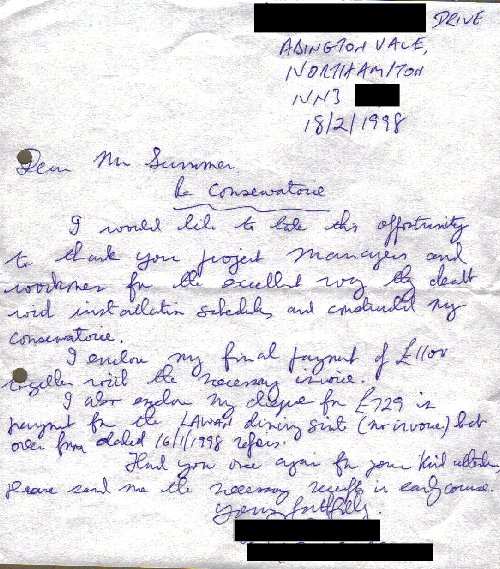 DRIVE
ABINGTON VALE,
NORTHAMPTON
NN3
18/2/1998
Dear Mr Summer.
Re Conservatorie
I would like to take this opportunity
to thank your project managers and
workmen for the excellent way they dealt
with installation schedules and constructed my
conservatorie.
I enclose my final payment of £1100
together with the necessary invoice.
I also enclose my cheque for £729 in
payment for the dining suit (no invoice) but
order form dated 16/1/1998 refers.
Thank you once again for your kind
please send me the necessary receipts in early course.
Yours faithfully.